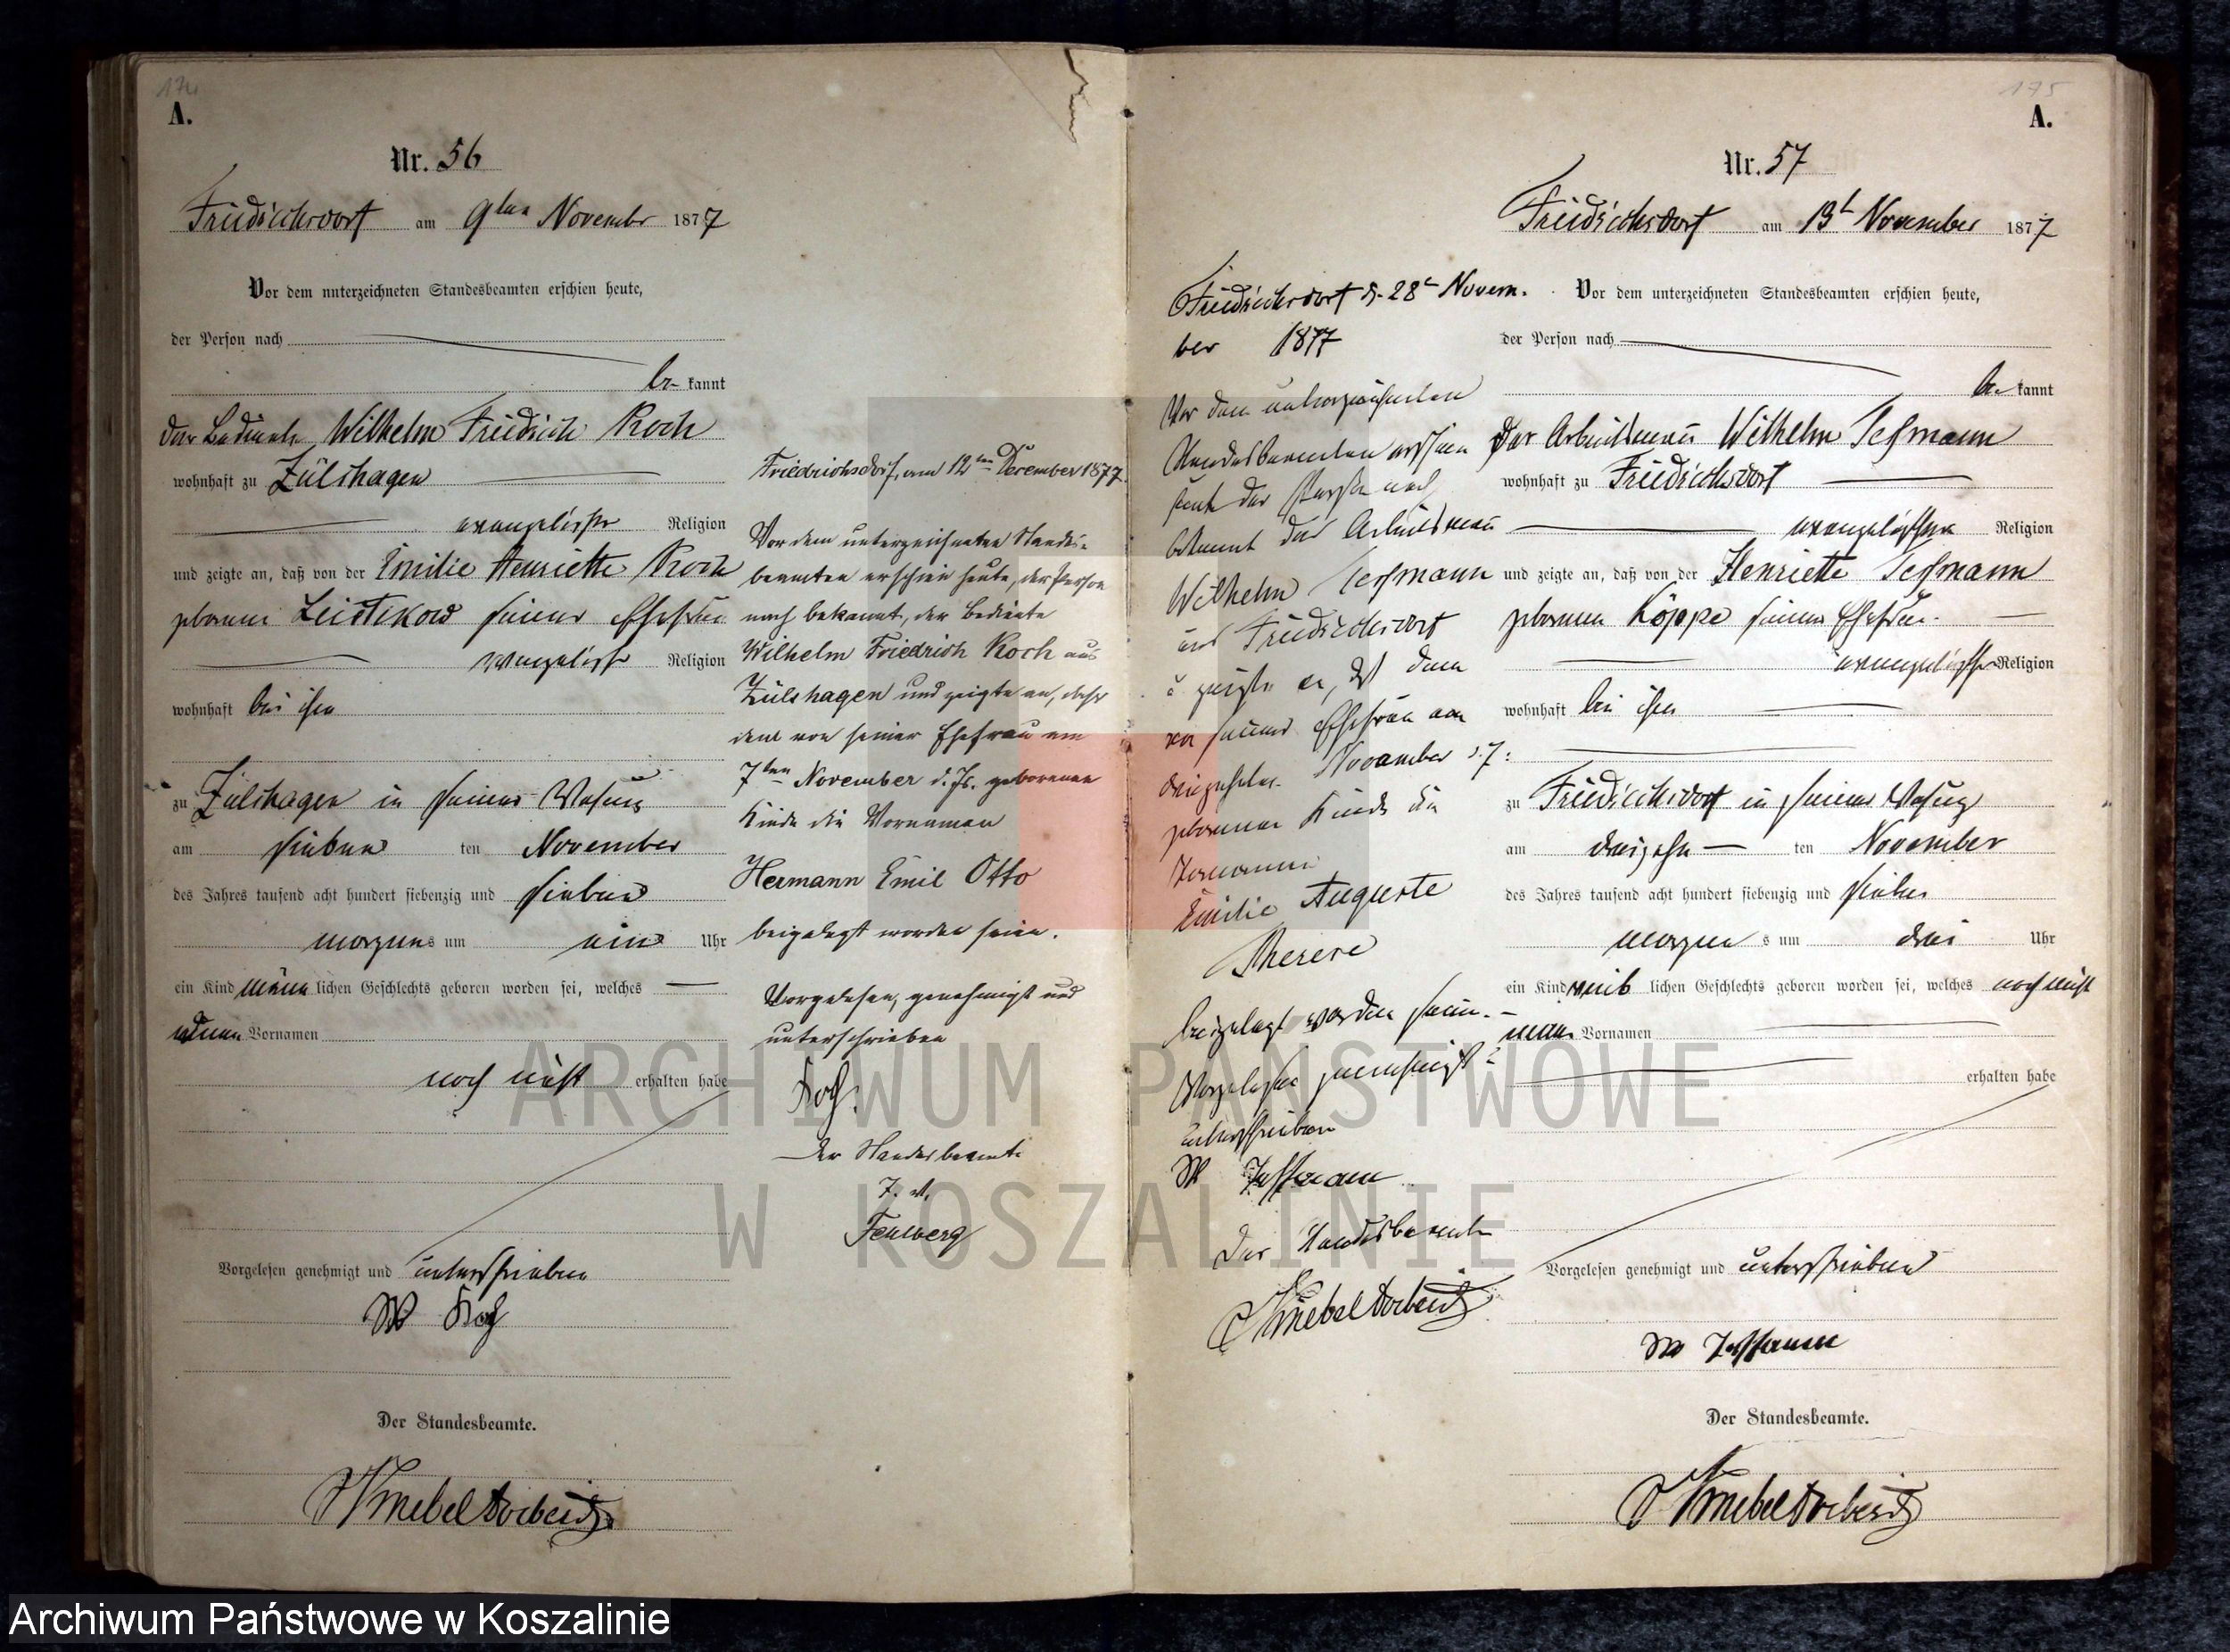 174
A.
Nr. 56
Friedrichsdorf am 9ten November 1877
Vor dem unterzeichneten Standesbeamten erschien heute,
der Person nach
be- kannt
der Bediente Wilhelm Friedrich Koch
wohnhaft zu Zülshagen
evangelischer Religion
und zeigte an, daß von der Emilie Henriette Koch
geborene Leistikow seiner Ehefrau
evangelischer Religion
wohnhaft bei ihm
zu Zülshagen in seiner Wohnung
am sieben ten November
des Jahres tausend acht hundert siebenzig und sieben
morgens um ein Uhr
ein Kind männ lichen Geschlechts geboren worden sei, welches
Vornamen
noch nicht erhalten habe
Vorgelesen genehmigt und unterschrieben
W Koch
Der Standesbeamte.
Knebel Doeberitz
Friedrichsdorf, am 12ten Dezember 1877.
Vor dem unterzeichneten Standes-
beamten erschien heute, der Person
nach bekannt, der Bediente
Wilhelm Friedrich Koch aus
Zülshagen und zeigte an, daß
dem von seiner Ehefrau am
7ten November d. Js. geborenen
Kinde die Vornamen
Hermann Emil Otto
beigelegt worden seien.
Vorgelesen, genehmigt und
unterschrieben
Koch.
Der Standesbeamte
Friedrichsdorf d. 28t Novem-
ber 1877
Vor dem unterzeichneten
Standesbeamten erschien
heute der Person nach
bekannt der Arbeitsmann
Wilhelm Teßmann
aus Friedrichsdorf
u zeigte an, daß dem
von seiner Ehefrau am
dreizehnten November d. J.
geborenen Kinde die
Vornamen
Emilie Auguste
Therese
beigelegt worden seien.
Vorgelesen genehmigt u
unterschrieben
W Teßmann
Der Standesbeamte
Knebel Doeberitz
175
A.
Nr. 57
Friedrichsdorf am 13t November 1877
Vor dem unterzeichneten Standesbeamten erschien heute,
der Person nach
be- kannt
Der Arbeitsmann Wilhelm Teßmann
wohnhaft zu Friedrichsdorf
evangelischer Religion
und zeigte an, daß von der Henriette Teßmann
geborenen Köppe seiner Ehefrau.
evangelischer Religion
wohnhaft bei ihm
zu Friedrichsdorf in seiner Wohnung
am dreizehn ten November
des Jahres tausend acht hundert siebenzig und sieben
morgen s um drei Uhr
ein Kind weib lichen Geschlechts geboren worden sei, welches noch nicht
Vornamen
erhalten habe
Vorgelesen genehmigt und unterschrieben
W Teßmann
Der Standesbeamte.
Knebel Doeberitz
ARCHIWUM PAŃSTWOWE
W KOSZALINIE
Archiwum Państwowe w Koszalinie